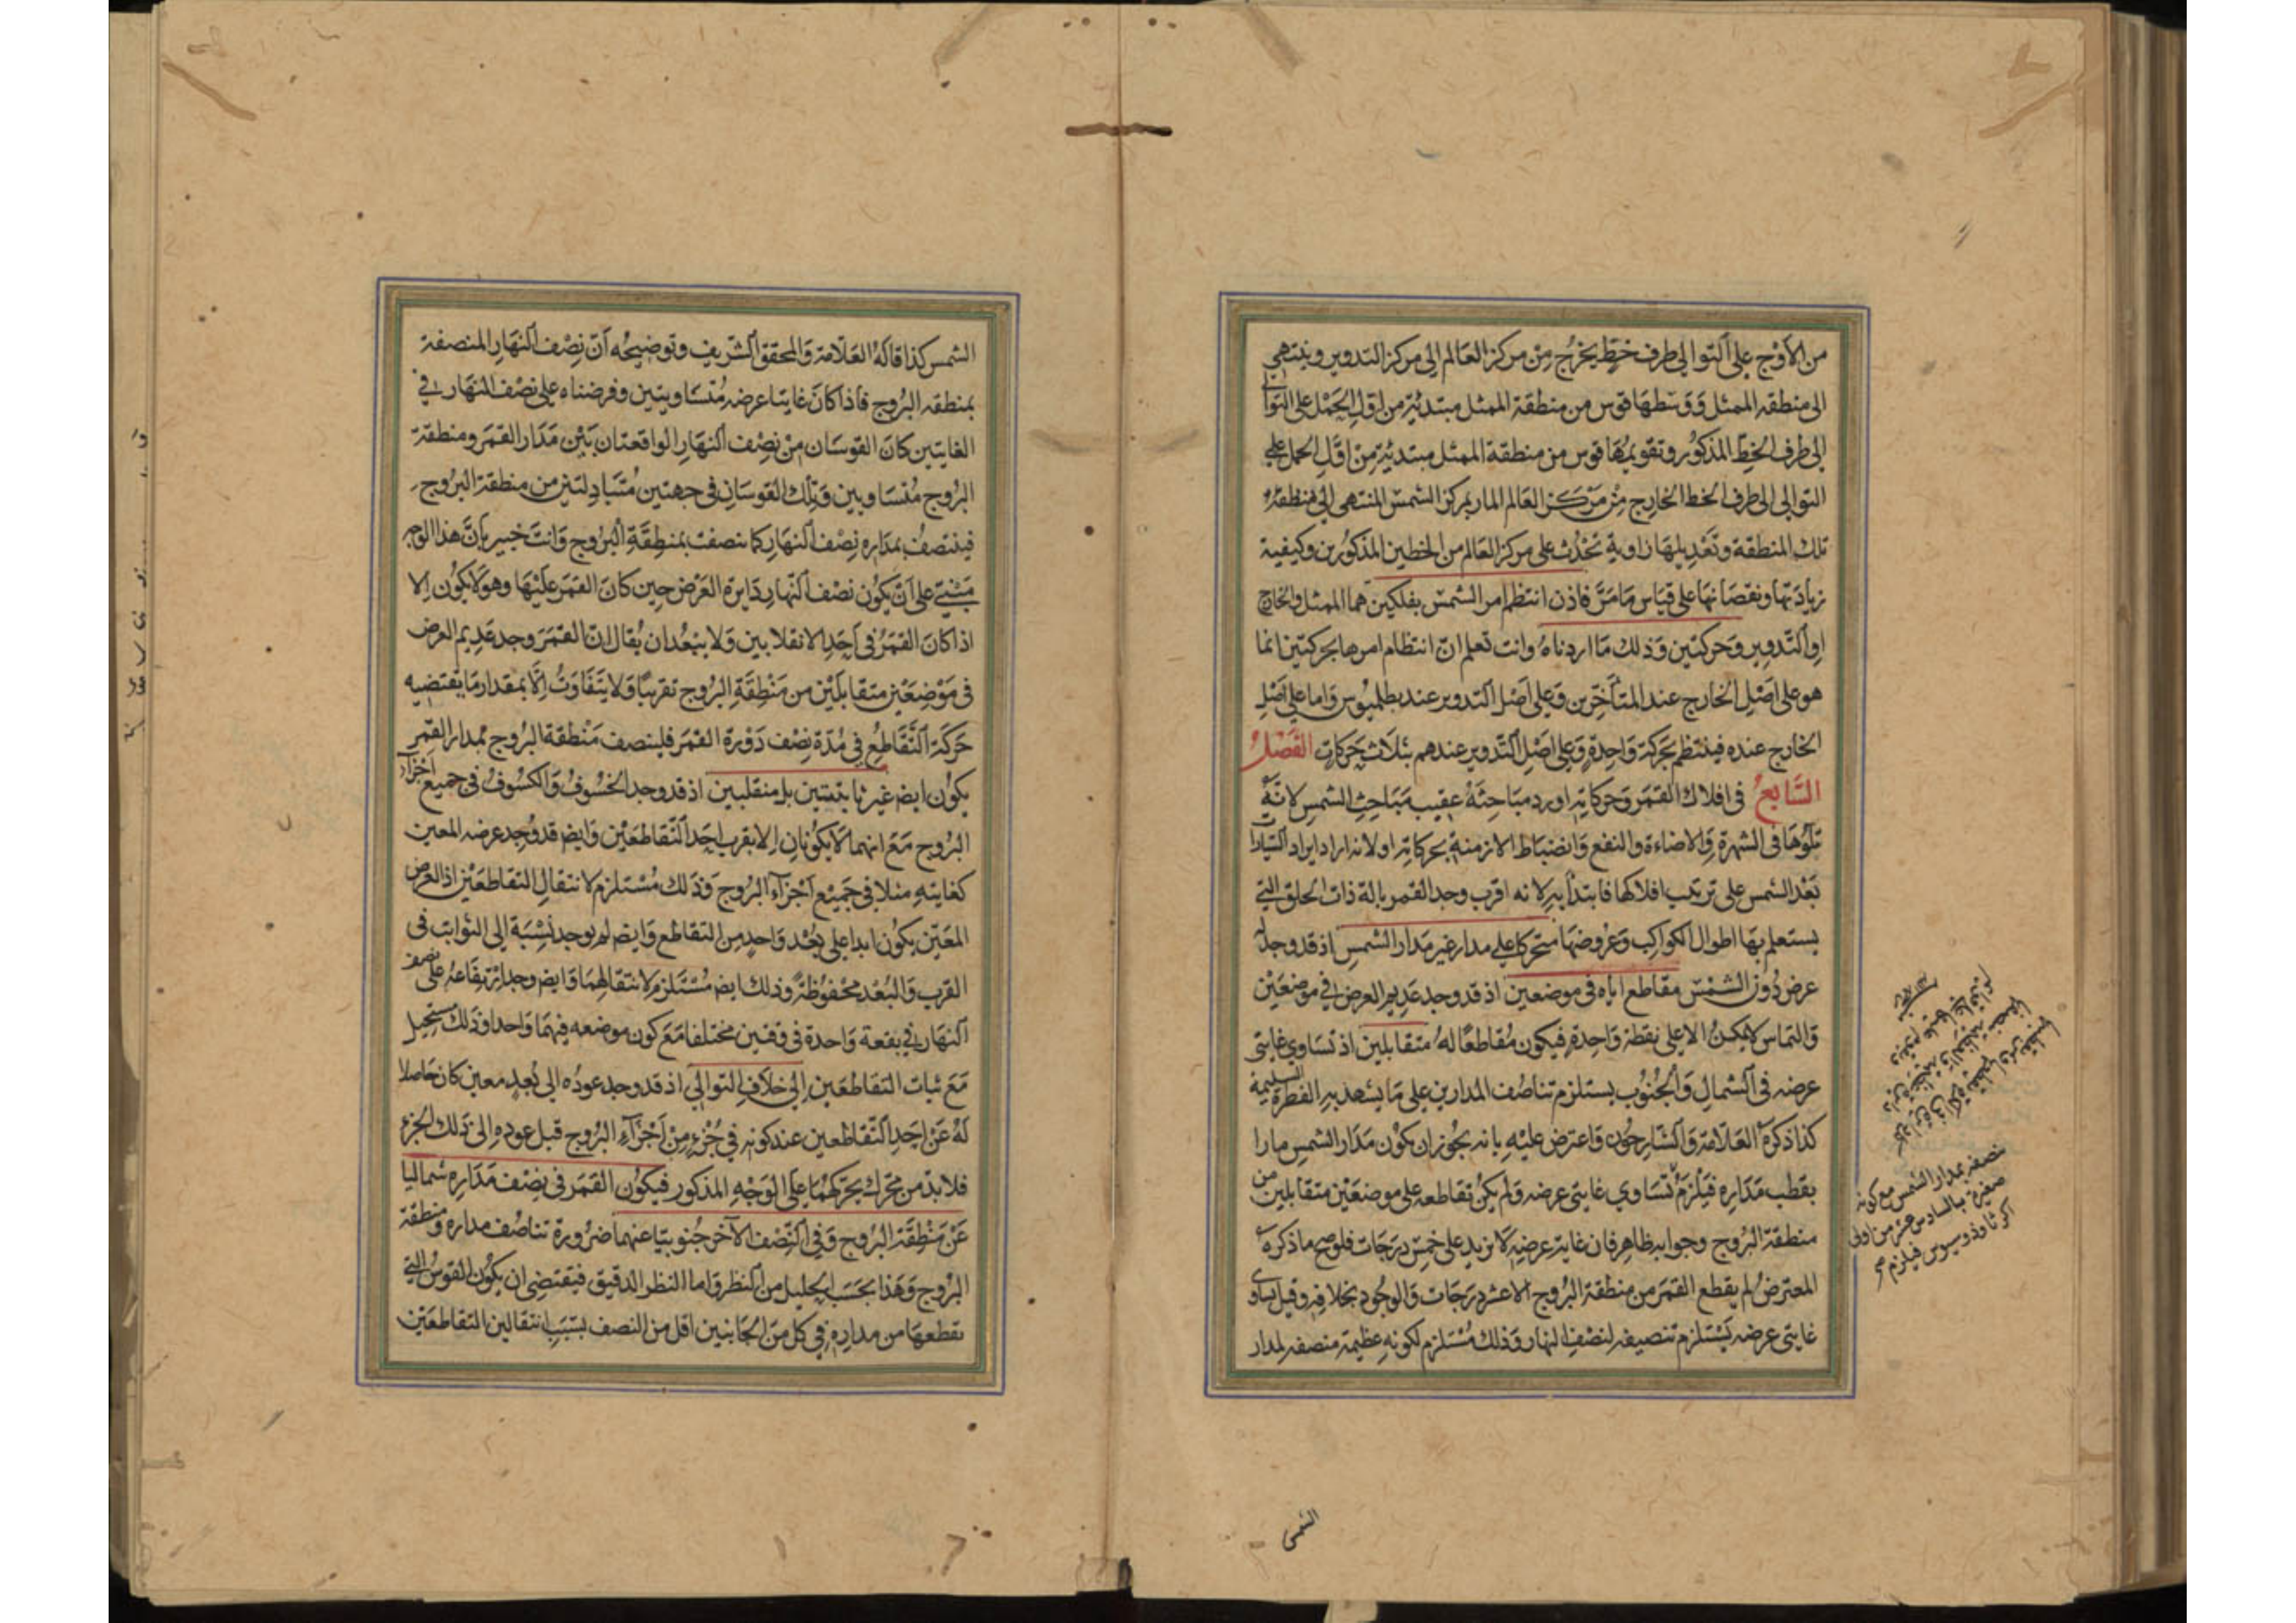 من الاوج على التوالى طرف خط يخرج من مركز العالم الى مركز التدوير وينتهى
الى منطقة الممثل ووسطها قوس من منطقة الممثل مبتدئة من اول الحمل على التوالى
الى طرف الخط المذكور وتقويمها قوس من منطقة الممثل مبتدئة من اول الحمل على
التوالى الى طرف الخط الخارج من مركز العالم المار بمركز الشمس المنتهى الى منطقة
تلك المنطقة وتعديلها زاوية تحدث على مركز العالم من الخطين المذكورين وكيفية
زيادتها ونقصانها على قياس ما مر فاذن انتظم امر الشمس بفلكين هما الممثل والخارج
او التدوير وحركتين وذلك ما اردناه وانت تعلم ان انتظام امرها بحركتين انما
هو على اصل الخارج عند المتأخرين وعلى اصل التدوير عند بطلميوس واما على اصل
الخارج عنده فينتظم بحركة واحدة وعلى اصل التدوير عندهم بثلاث حركات الفصل
السابع فى افلاك القمر وحركاته اورد مباحثه عقيب مباحث الشمس لانه
تلوها فى الشهرة والاضاءة والنفع وانضباط الازمنة بحركاته اولانه اراد ايراد السيارات
بعد الشمس على ترتيب افلاكها فابتدأ به لانه اقرب وجد القمر بالة ذات الحلق التى
يستعلم بها اطوال الكواكب وعروضها متحركا على مدار غير مدار الشمس اذ قد وجد له
عرض دون الشمس مقاطع اياه فى موضعين اذ قد وجد عديم العرض فى موضعين
والتماس لا يمكن الا على نقطة واحدة فيكون مقاطعا له متقابلين اذ تساوى غايتى
عرضه فى الشمال والجنوب يستلزم تناصف المدارين على ما يشهد به الفطرة السليمة
كذا ذكره العلامة والشارحون واعترض عليه بانه يجوز ان يكون مدار الشمس مارا
بقطب مداره فيلزم تساوى غايتى عرضه ولم يكن تقاطعه على موضعين متقابلين من
منطقة البروج وجوابه ظاهر فان غاية عرضه لا يزيد على خمس درجات فلو صح ما ذكره
المعترض لم يقطع القمر من منطقة البروج الا عشر درجات والوجود بخلافه وقيل تساوى
غايتى عرضه يستلزم تنصيفه لنصف النهار وذلك مستلزم لكونه عظيمة منصفة لمدار
منصفه بمدار الشمس مع كونه
صغيرة بالسادس عشر من اولى
اكر ثاوذوسيوس فيلزم
الشمس
الشمس كذا قاله العلامة والمحقق الشريف وتوضيحه ان نصف النهار المنصفة
بمنطقة البروج فاذا كان غايتا عرضه متساويتين وفرضناه على نصف النهار فى
الغايتين كان القوسان من نصف النهار الواقعتان بين مدار القمر ومنطقة
البروج متساويين وتلك القوسان فى جهتين متبادلتين من منطقة البروج
فينتصف بمداره نصف النهار كما تنصفت بمنطقة البروج وانت خبير بان هذا الوجه
مبنى على ان يكون نصف النهار دايرة العرض حين كان القمر عليها وهو لا يكون الا
اذا كان القمر فى احد الانقلابين ولا يبعد ان يقال ان القمر وجد عديم العرض
فى موضعين متقابلين من منطقة البروج تقريبا ولا يتفاوت الا بمقدار ما يقتضيه
حركة التقاطع فى مدة نصف دورة القمر فلينصف منطقة البروج بمدار القمر
يكون ايض غير ثابتتين بل منقلبين اذ قد وجد الخسوف والكسوف فى جميع اجزاء
البروج مع انهما لا يكونان الا بقرب احد التقاطعين وايض قد وجد عرضه المعين
كغايته مثلا فى جميع اجزاء البروج وذلك مستلزم لانتقال التقاطعين اذ العرض
المعين يكون ابدا على بعد واحد من التقاطع وايض لم يوجد نسبة الى الثوابت فى
القرب والبعد محفوظة وذلك ايض مستلزم لانتقالهما وايض وجد ارتفاعه على نصف
النهار فى بقعة واحدة فى وقتين مختلفا مع كون موضعه فيهما واحدا وذلك مستحيل
مع ثبات التقاطعين الى خلاف التوالى اذ قد وجد عوده الى بعد معين كان حاصلا
له عن احد التقاطعين عند كونه فى جزء من اجزاء البروج قبل عوده الى ذلك الجزء
فلا بد من محرك يحركهما على الوجه المذكور فيكون القمر فى نصف مداره شماليا
عن منطقة البروج وفى النصف الاخر جنوبيا عنهما ضرورة تناصف مداره ومنطقة
البروج وهذا بحسب الجليل من النظر واما النظر الدقيق فيقتضى ان يكون القوس التى
يقطعها من مداره فى كل من الجانبين اقل من النصف بسبب انتقال التقاطعين